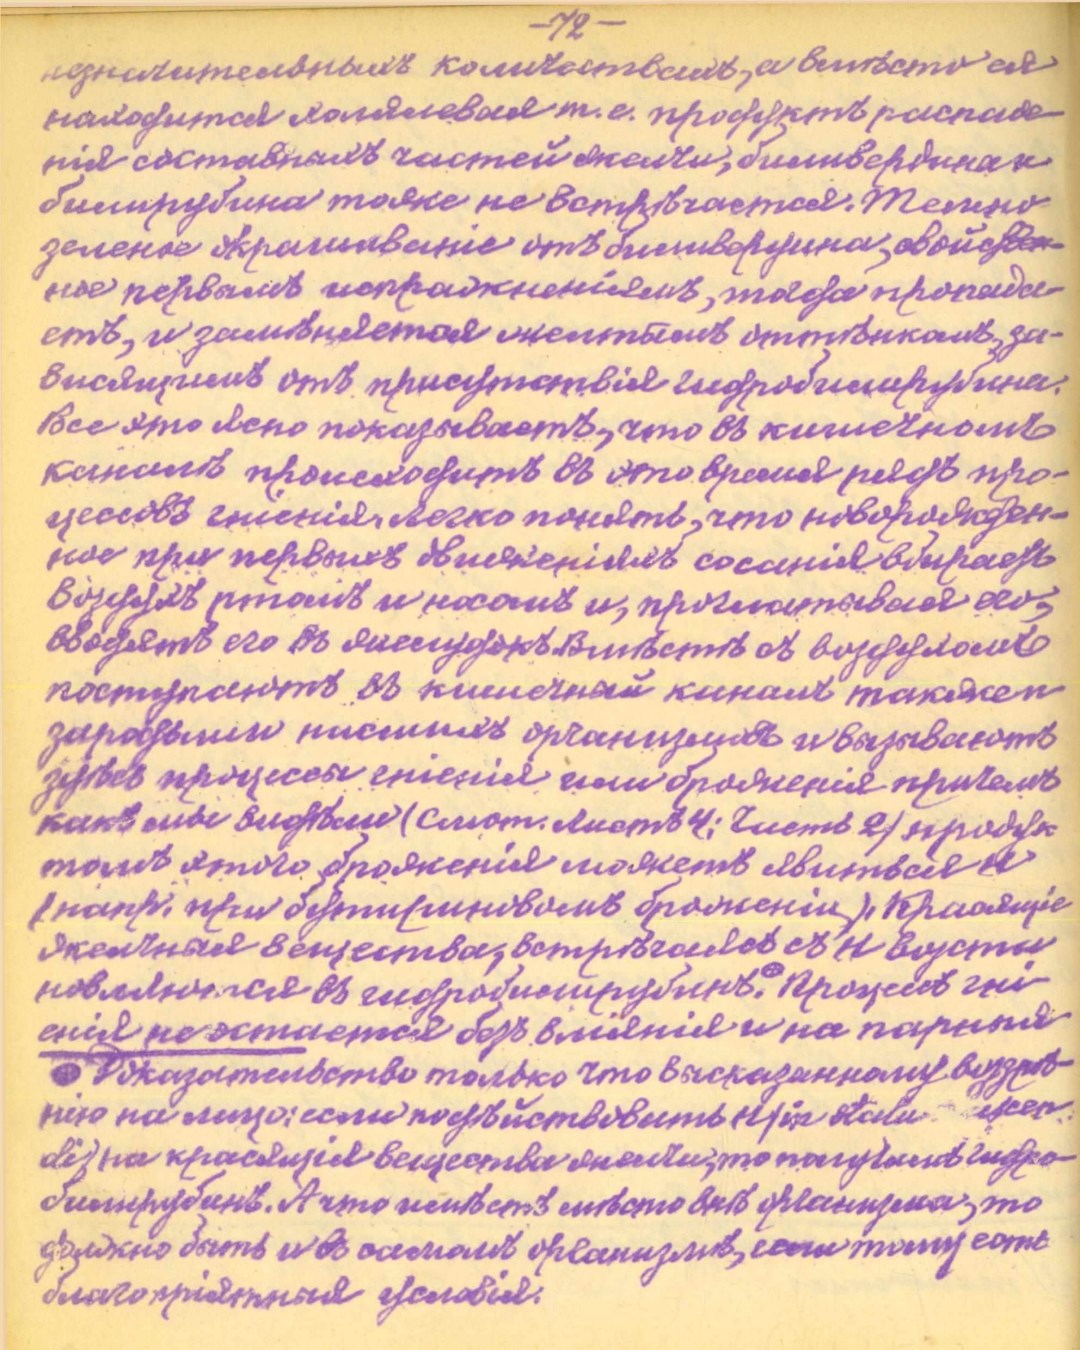 —72—
незначительныхъ количествахъ, а вмѣсто ея
находится холялевая т. е. продуктъ распаде-
нія составныхъ частей желчи, биливердина и
билирубина тоже не встрѣчается. Темно
зеленое окрашиваніе отъ биливердина, свойствен-
ное первымъ испражненіямъ, тогда пропада-
етъ, и замѣняется желтымъ оттѣнкомъ, за-
висящимъ отъ присутствія гидробилирубина.
Все это ясно показываетъ, что въ кишечномъ
каналѣ происходитъ въ это время рядъ про-
цессовъ гніенія. Легко понять, что новорожден-
ное при первыхъ движеніяхъ сосанія вбираетъ
воздухъ ртомъ и носомъ и, проглатывая его,
вводятъ его въ желудокъ. Вмѣстѣ съ воздухомъ
поступаютъ въ кишечный каналъ также и
зародыши низшихъ организмовъ и вызываютъ
здѣсь процессы гніенія или броженія причемъ
какъ мы видѣли (Смот. Листъ 4; Часть 2) продук
томъ этого броженія можетъ явиться H
(напр. при бутириновомъ броженіи). Красящіе
желчныя вещества, встрѣчаясь съ H возста
новляются въ гидробилирубинъ. Процессъ гні
енія не остается безъ вліянія и на парныя
Доказательство только что высказанному воззрѣ-
нію на лицо: если подѣйствовать H (in
di) на красящія вещества желчи, то получимъ гидро-
билирубинъ. А что имѣетъ мѣсто внѣ организма, то
должно быть и въ самомъ организмѣ, если тому есть
благопріятныя условія.